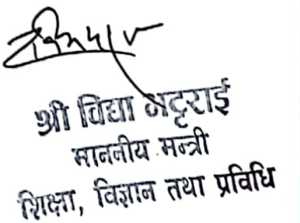 श्री विद्या भट्टराई
माननीय मन्त्री
शिक्षा, विज्ञान तथा प्रविधि